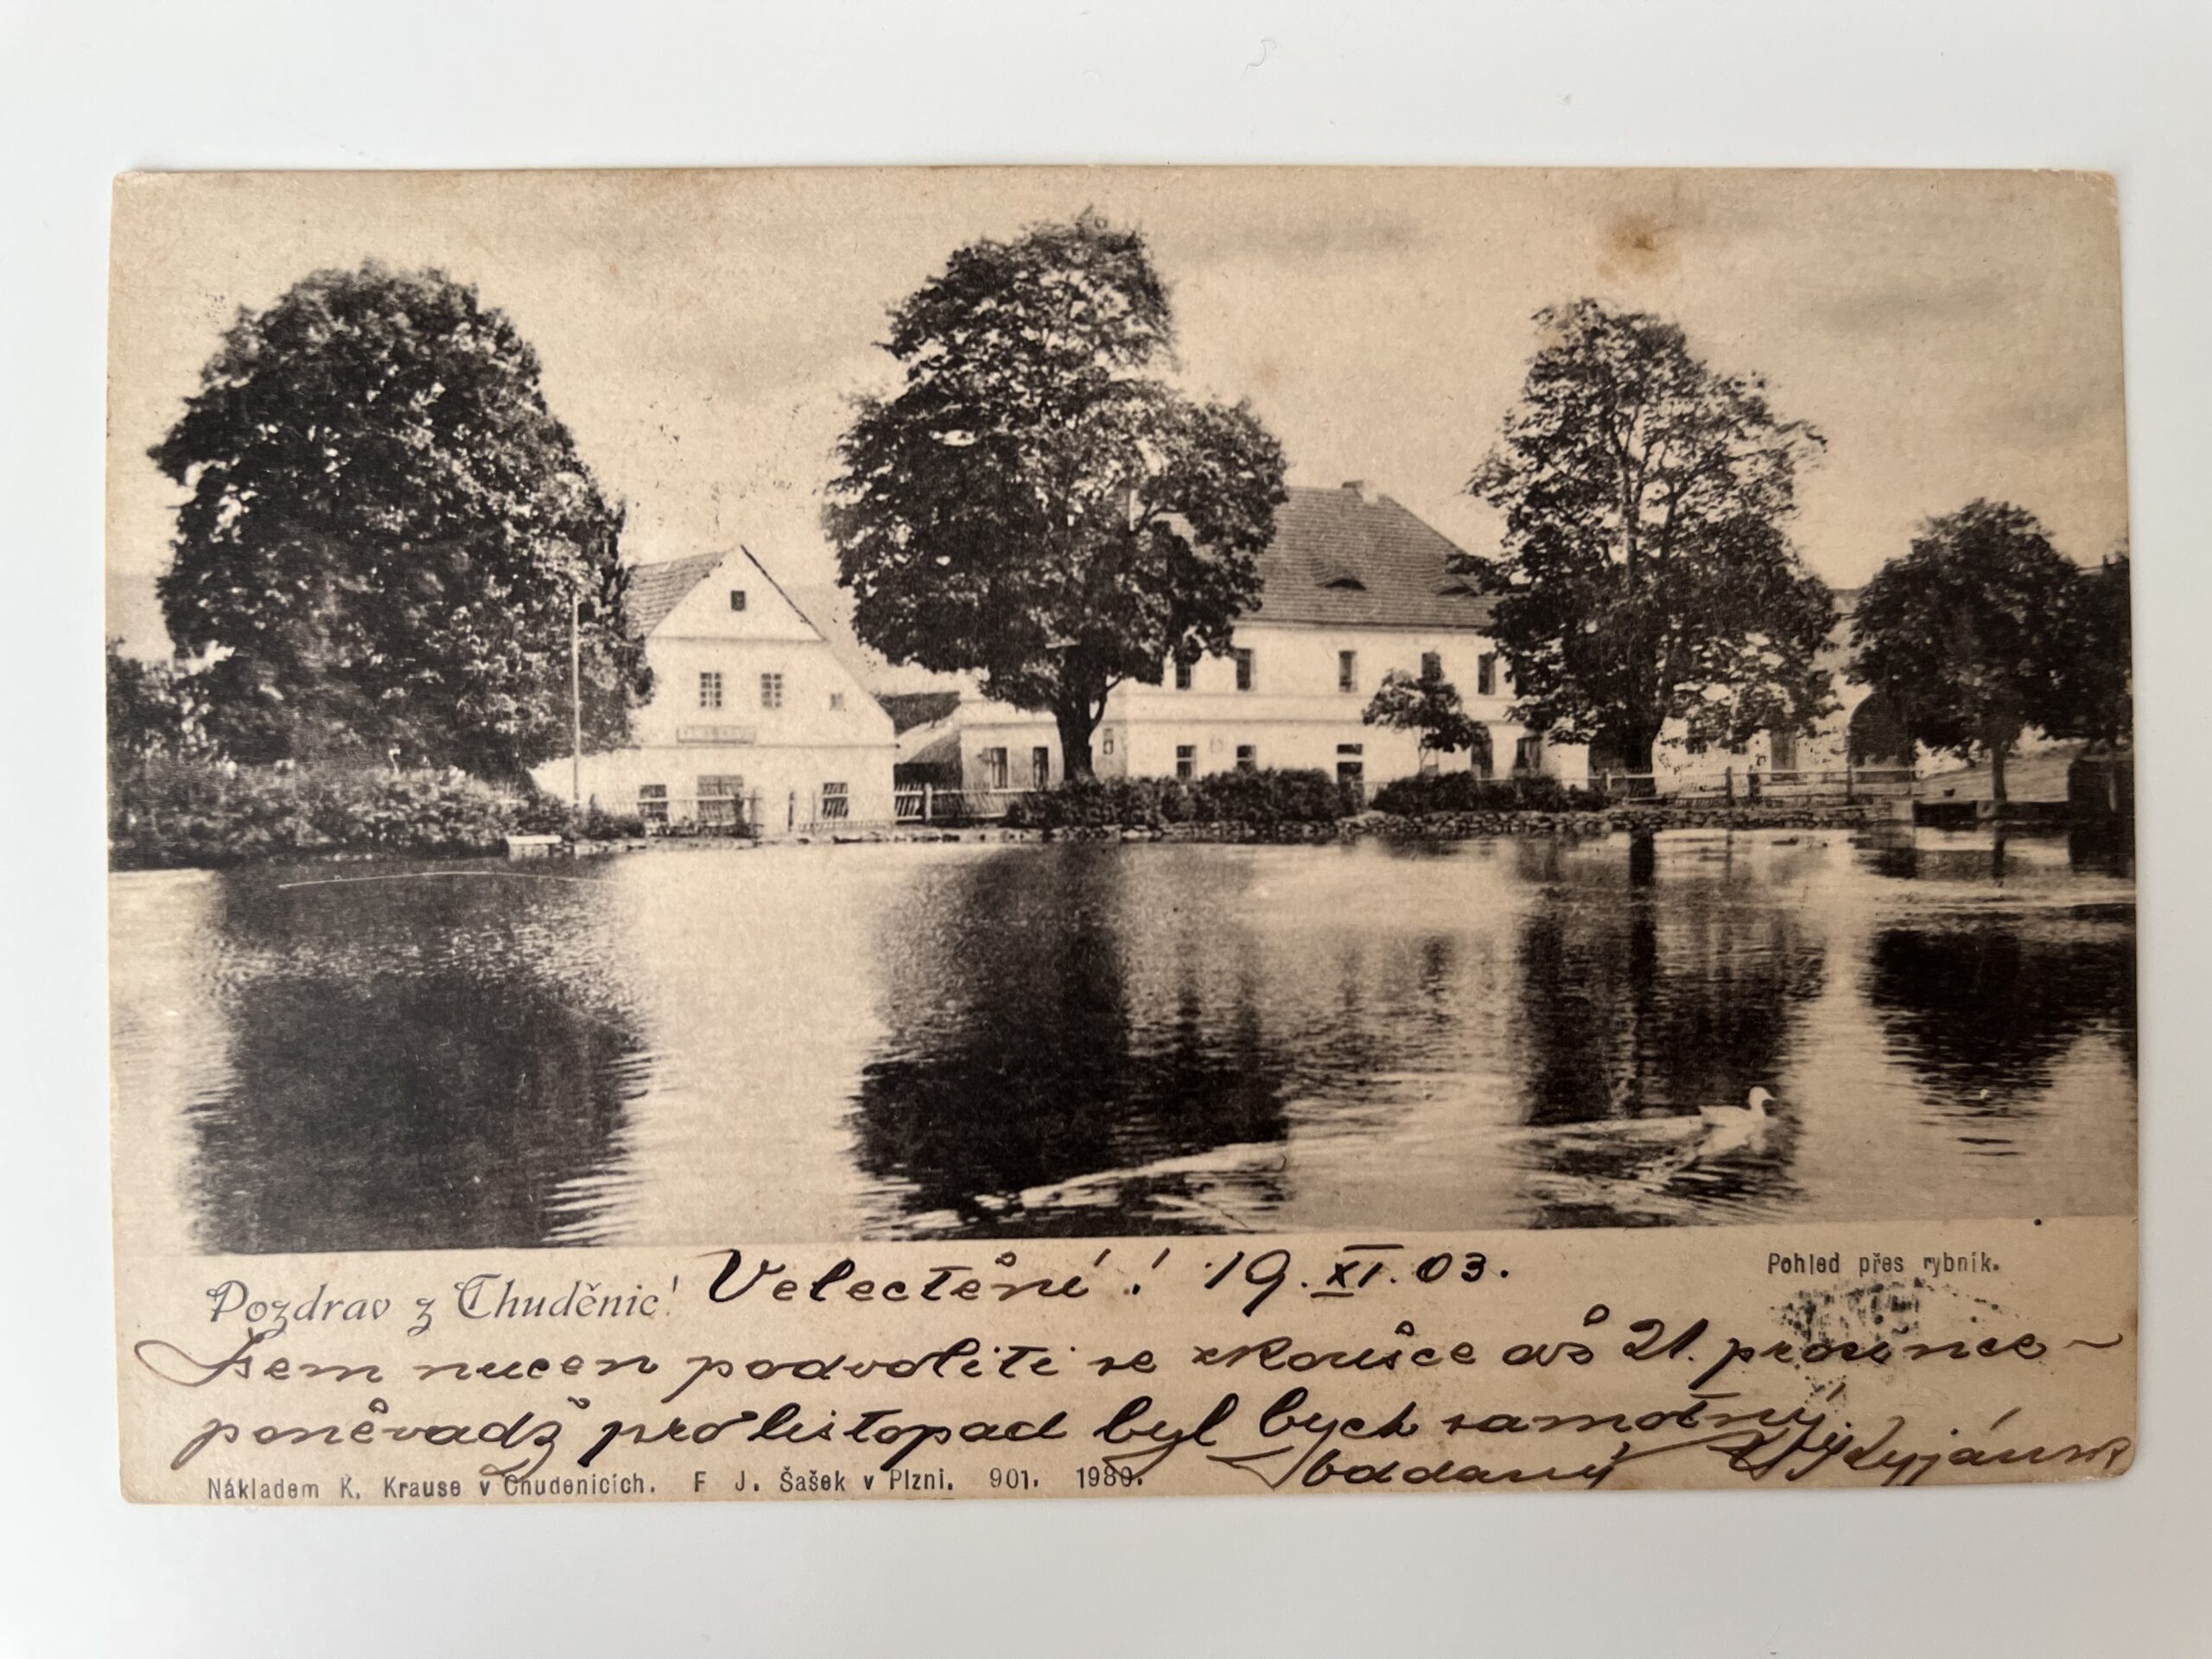 Pozdrav z Chuděnic!
Velectění! 19. XI. 03.
Pohled přes rybník.
Jsem nucen podvoliti se zkoušce až 21. prosince
poněvadž pro listopad byl bych samotný.
oddaný
Nákladem K. Krause v Chudenicích. F. J. Šašek v Plzni. 901. 1980.